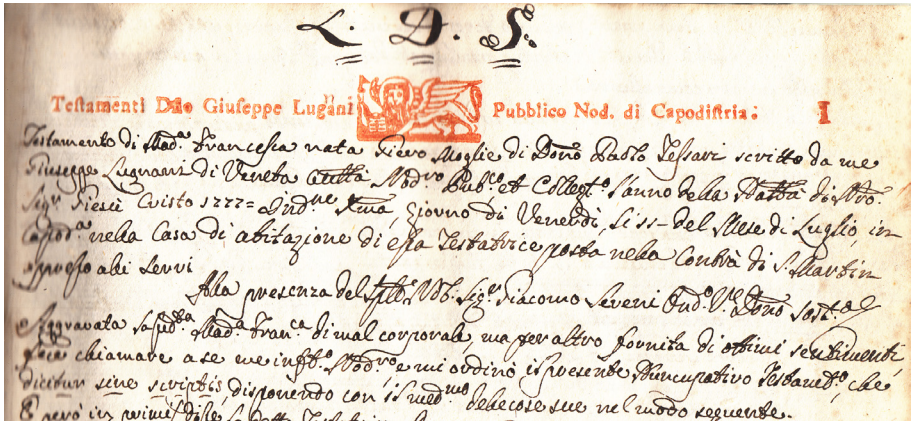 L. D. S.
Testamenti D Giuseppe Lugnani Pubblico Nod. di Capodistria. I
Testamento di Mad.ª Francesca nata Moglie di Dono Paolo Tessari scritto da me
Giuseppe Lugnani di Veneta Nod.ro Pub.co et Colleg.to l'anno della di Nro.
Sig.r Giesù Cristo 1777= Ind.ne Xma, Giorno di Venerdì, li 11- del Mese di Luglio in
Capod.ª nella Casa di abitazione di essa Testatrice posta nella Contrà di S. Martin
appresso
Alla presenza del Nob. Sig.r Giacomo
Aggravata Mad.ª Fran.ca di mal corporale, ma per altro fornita di ottimi sentimenti,
fece chiamare a se me Nod.ro, e mi ordinò il presente Nuncupativo Testam.to, che
dicitur sine scriptis, disponendo con il med.mo delle cose sue nel modo seguente.
E però in